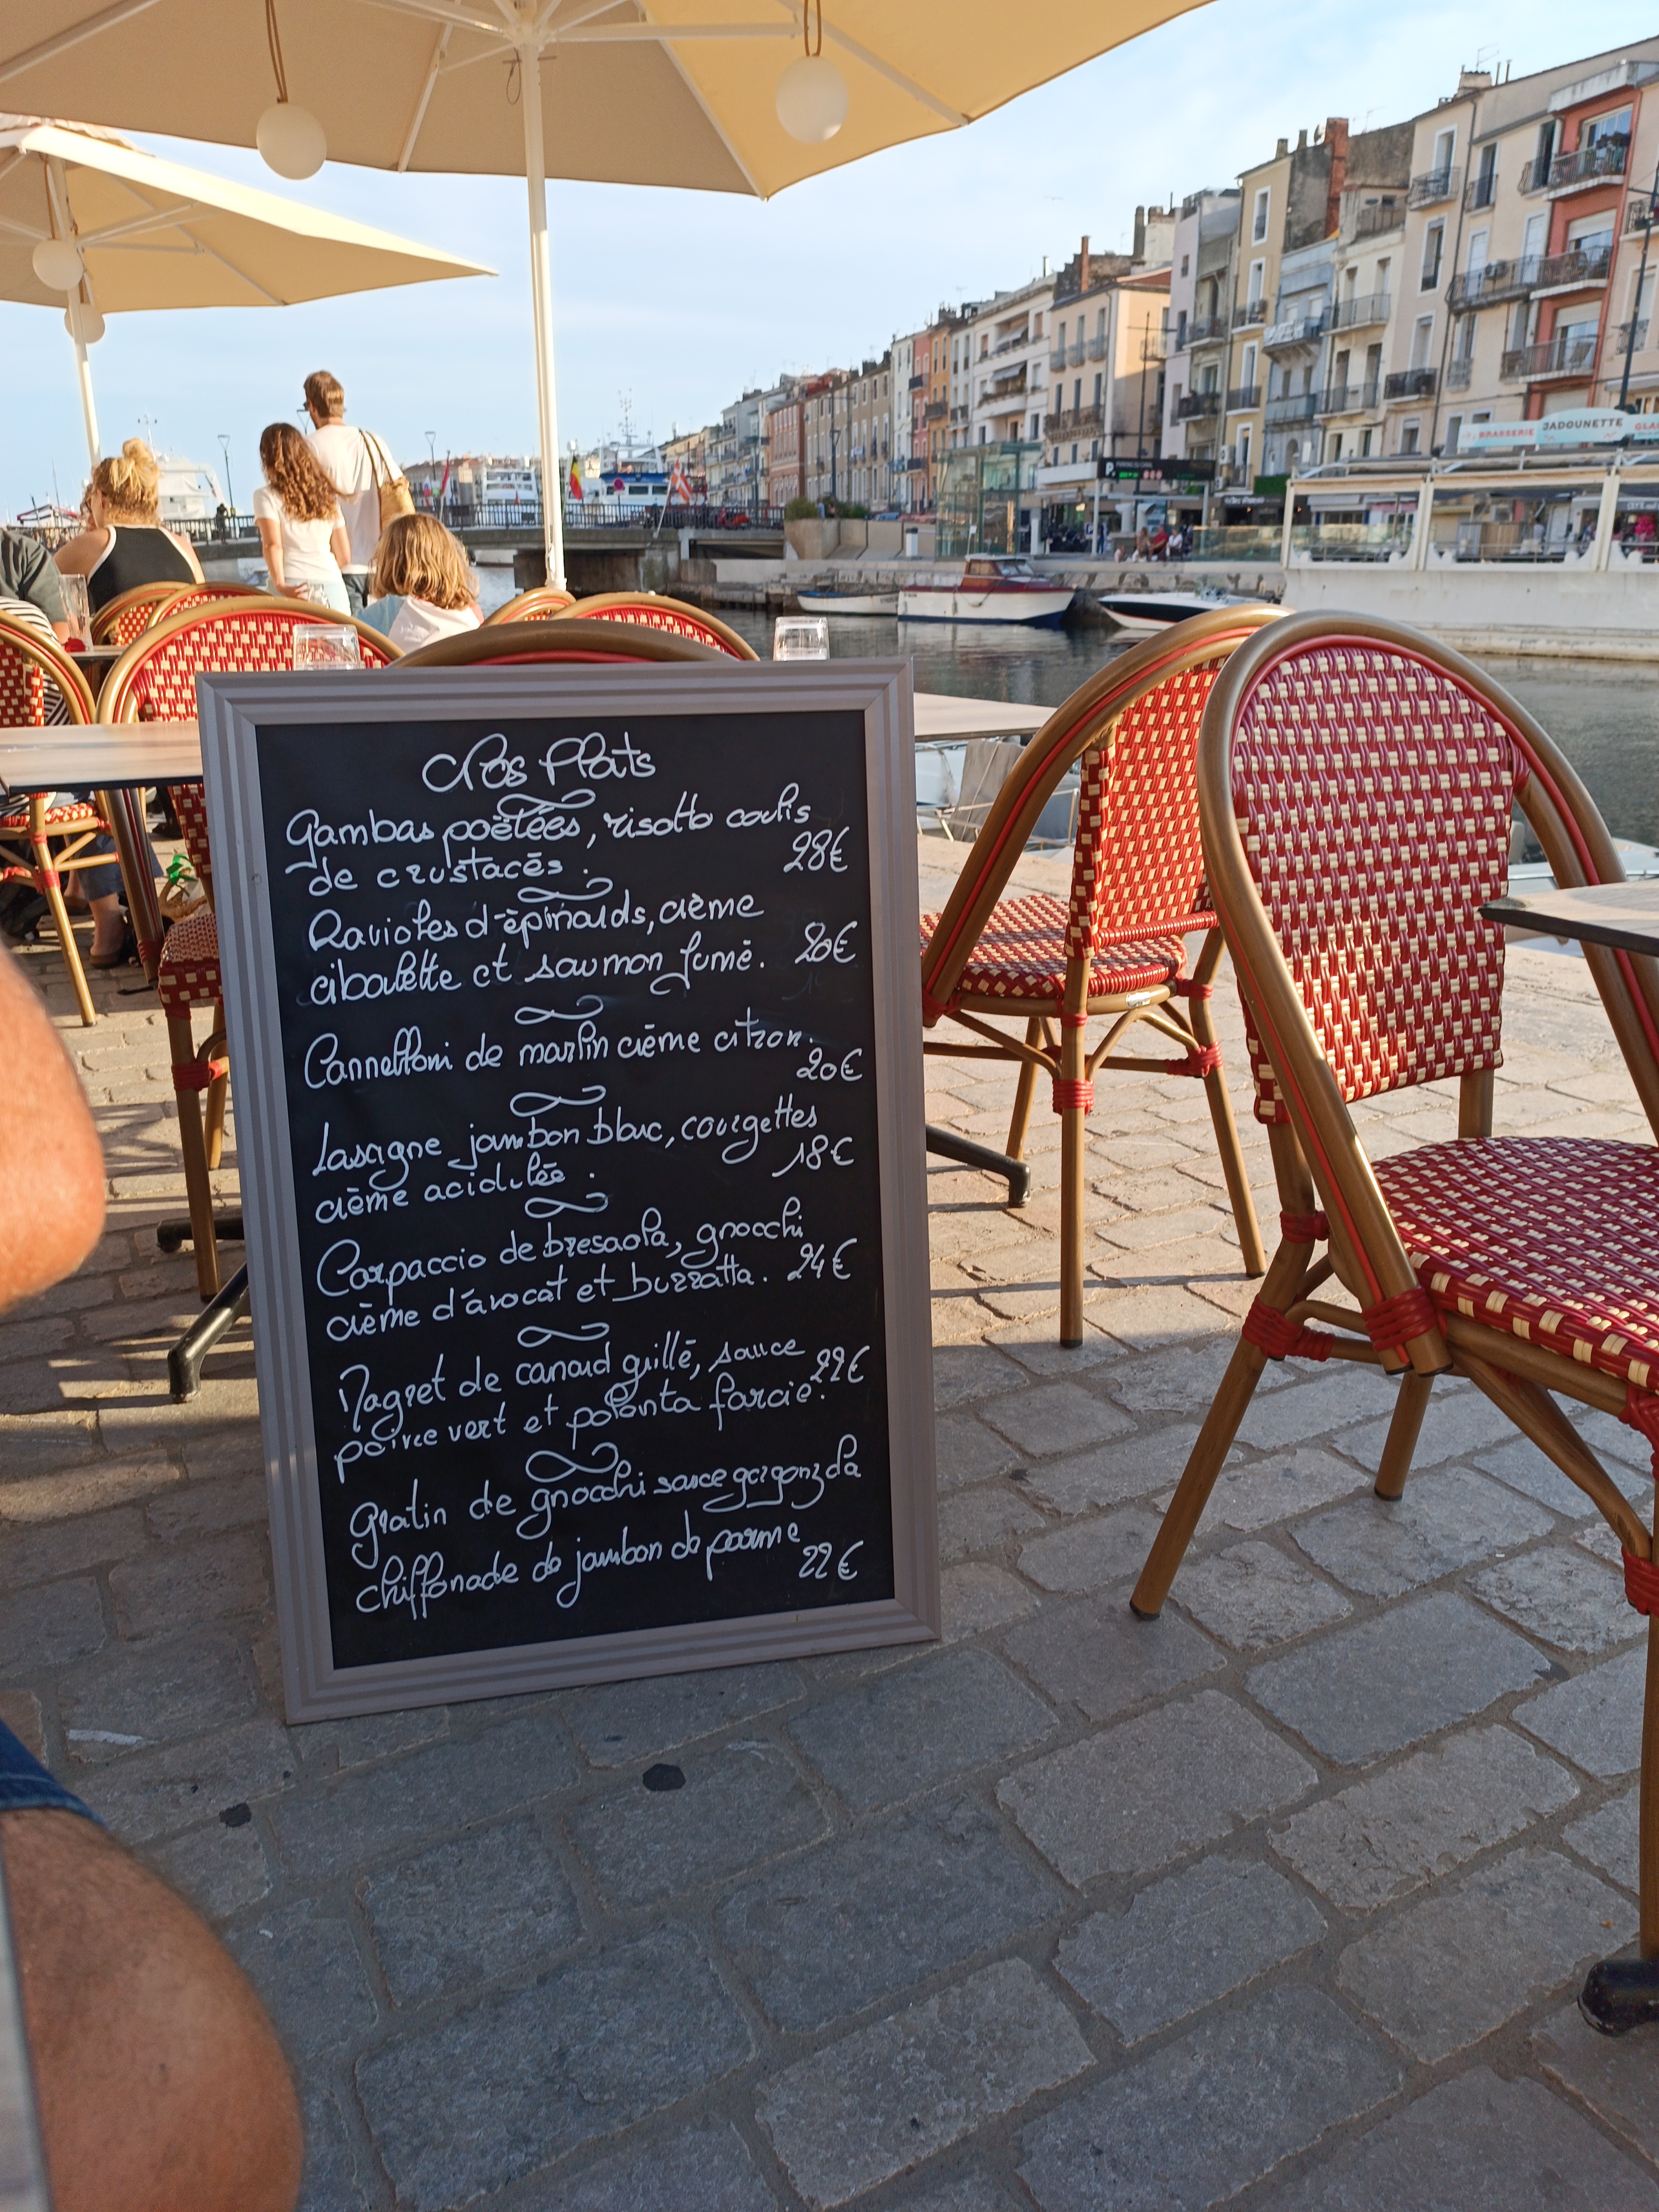 BRASSERIE JADOUNETTE GLA
P
Nos Plats
Gambas poëlées, risotto coulis
de crustacés. 28€
Ravioles d'épinards, crème
ciboulette et saumon fumé. 20€
Cannelloni de marlin crème citron.
20€
Lasagne jambon blanc, courgettes
crème acidulée. 18€
Carpaccio de bresaola, gnocchi
crème d'avocat et burratta. 24€
Magret de canard grillé, sauce
poivre vert et polenta farcie. 22€
gratin de gnocchi sauce gorgonzola
chiffonade de jambon de parme
22€